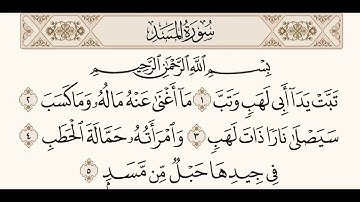 سُورَةُ المَسَدِ
بِسْمِ اللَّهِ الرَّحْمَٰنِ الرَّحِيمِ
تَبَّتْ يَدَآ أَبِي لَهَبٍ وَتَبَّ ١ مَآ أَغْنَىٰ عَنْهُ مَالُهُۥ وَمَا كَسَبَ ٢
سَيَصْلَىٰ نَارًا ذَاتَ لَهَبٍ ٣ وَٱمْرَأَتُهُۥ حَمَّالَةَ ٱلْحَطَبِ ٤
فِي جِيدِهَا حَبْلٌ مِّن مَّسَدٍۭ ٥